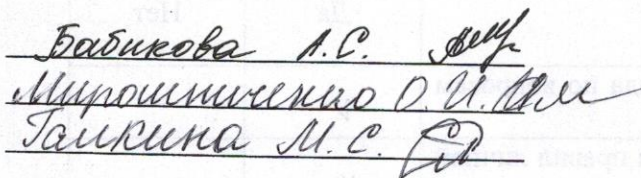 Бабикова А.С.
Мирошниченко О.И.
Галкина М.С.